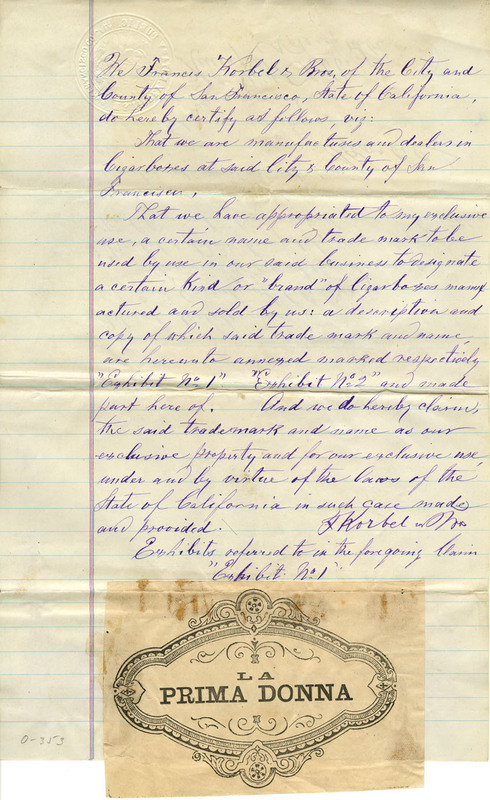 We Francis Korbel & Bros, of the City and
County of San Francisco, State of California,
do hereby certify as follows, viz:
That we are manufactures and dealers in
Cigarboxes at said City & County of San
Francisco,
That we have appropriated to my exclusive
use, a certain name and trade mark to be
used by use in our said business to designate
a certain Kind or "brand" of Cigarboxes manuf
actured and sold by us: a description and
copy of which said trade mark and name,
are hereunto annexed marked respectively
"Exhibit No 1" "Exhibit No 2" and made
part here of. And we do hereby claim,
the said trademark and name as our
exclusive property and for our exclusive use,
under and by virtue of the laws of the
State of California in such case made
and provided. F Korbel & Bros
Exhibits referred to in the foregoing Claim
"Exhibit No 1"
LA
PRIMA DONNA
0-353